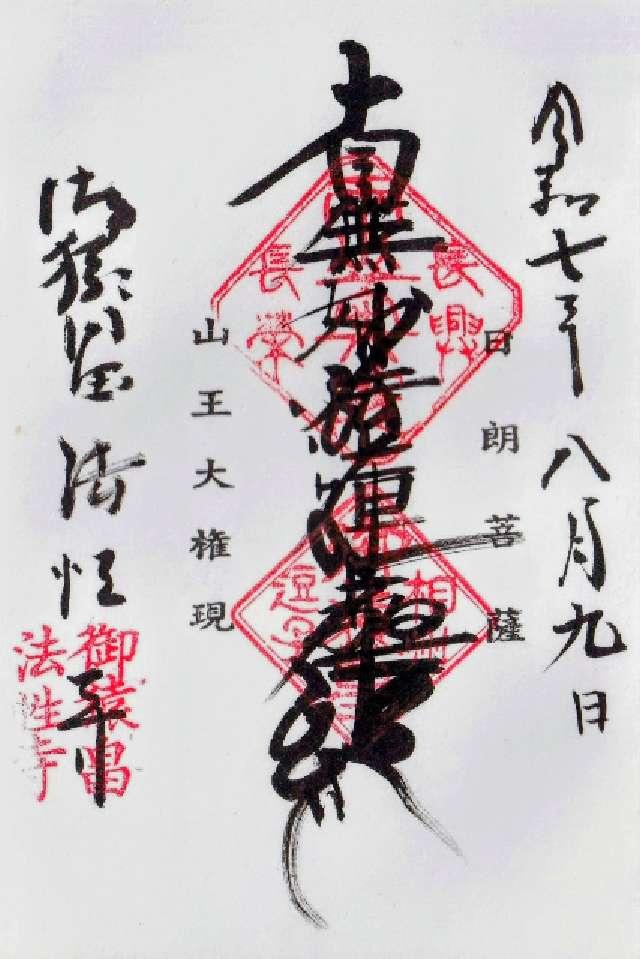 令和七年八月九日
日朗菩薩
南無妙法蓮華経
長興
長榮
相州
逗子
山王大権現
御猿畠 法性寺
御猿畠
法性寺